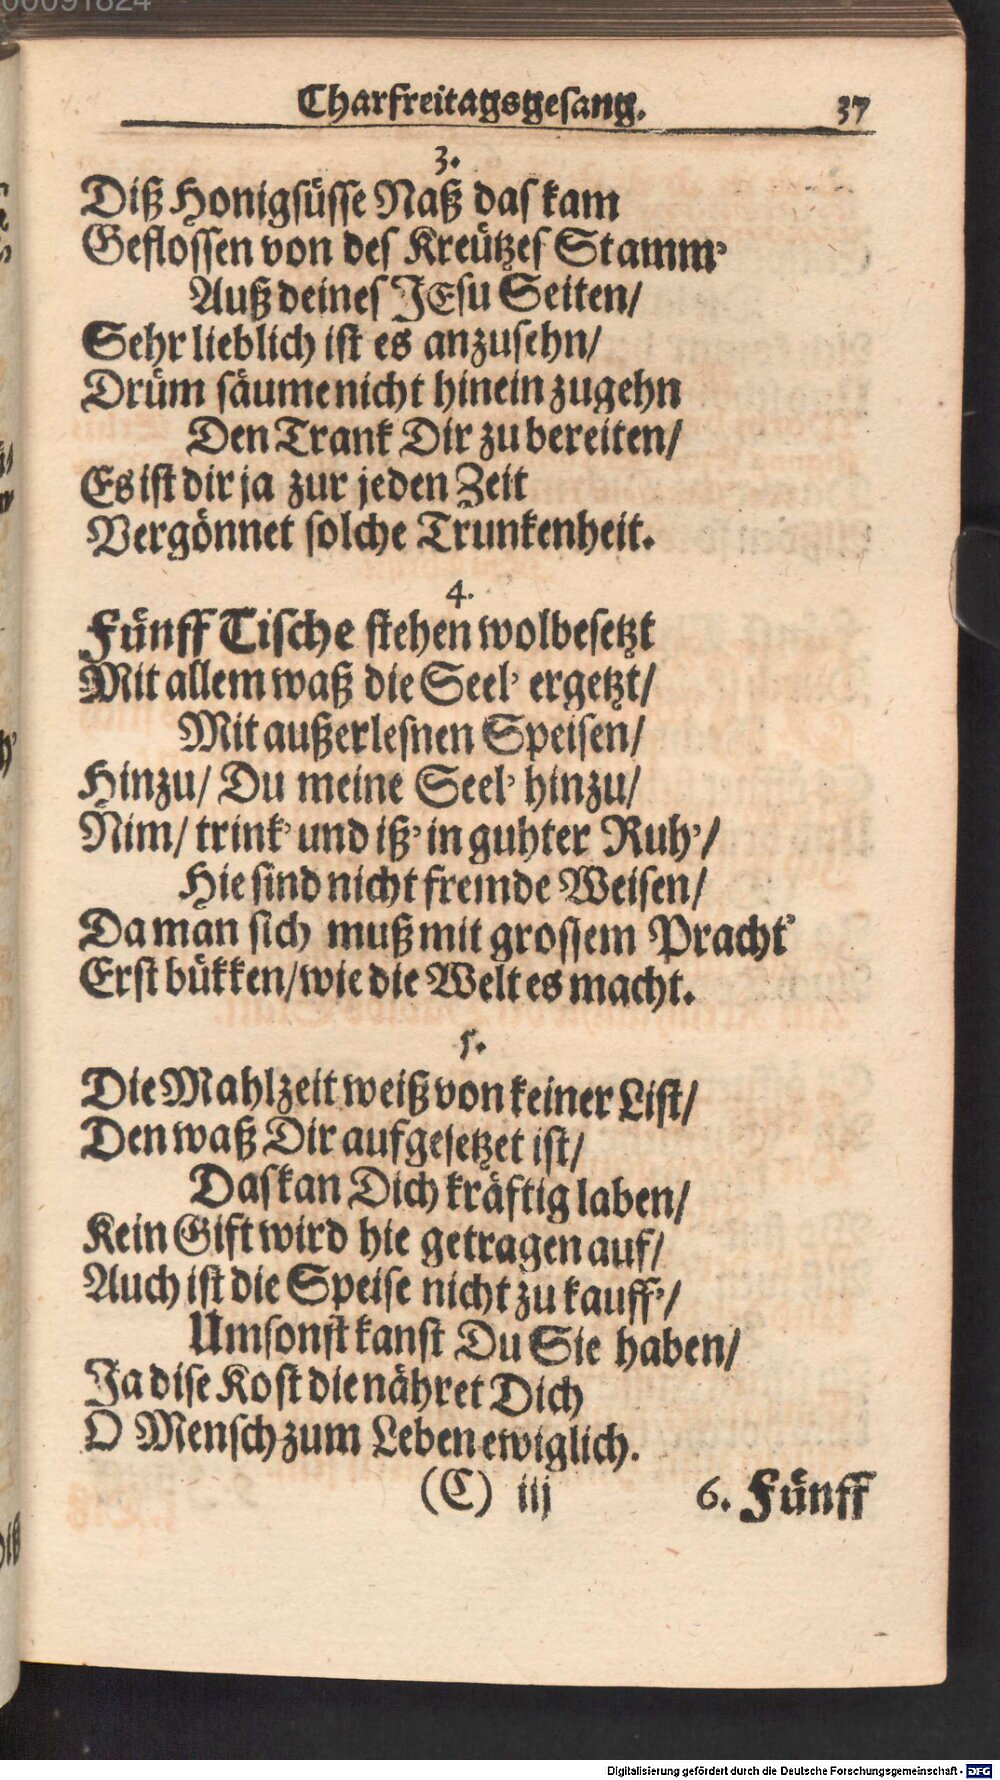 00091824
Charfreitagsgesang. 37
3.
Diß Honigsüsse Naß das kam
Geflossen von des Kreützes Stamm'
Auß deines JEsu Seiten/
Sehr lieblich ist es anzusehn/
Drüm säume nicht hinein zugehn
Den Trank Dir zu bereiten/
Es ist dir ja zur jeden Zeit
Vergönnet solche Trunkenheit.
4.
Fünff Tische stehen wolbesetzt
Mit allem waß die Seel' ergetzt/
Mit außerlesnen Speisen/
Hinzu/ Du meine Seel' hinzu/
Nim/ trink' und iß' in guhter Ruh'/
Hie sind nicht fremde Weisen/
Da man sich muß mit grossem Pracht'
Erst bükken/ wie die Welt es macht.
5.
Die Mahlzeit weiß von keiner List/
Den waß Dir aufgesetzet ist/
Das kan Dich kräftig laben/
Kein Gift wird hie getragen auf/
Auch ist die Speise nicht zu kauff'/
Umsonst kanst Du Sie haben/
Ja dise Kost die nähret Dich
O Mensch zum Leben ewiglich.
(C) iij 6. Fünff
Digitalisierung gefördert durch die Deutsche Forschungsgemeinschaft - DFG